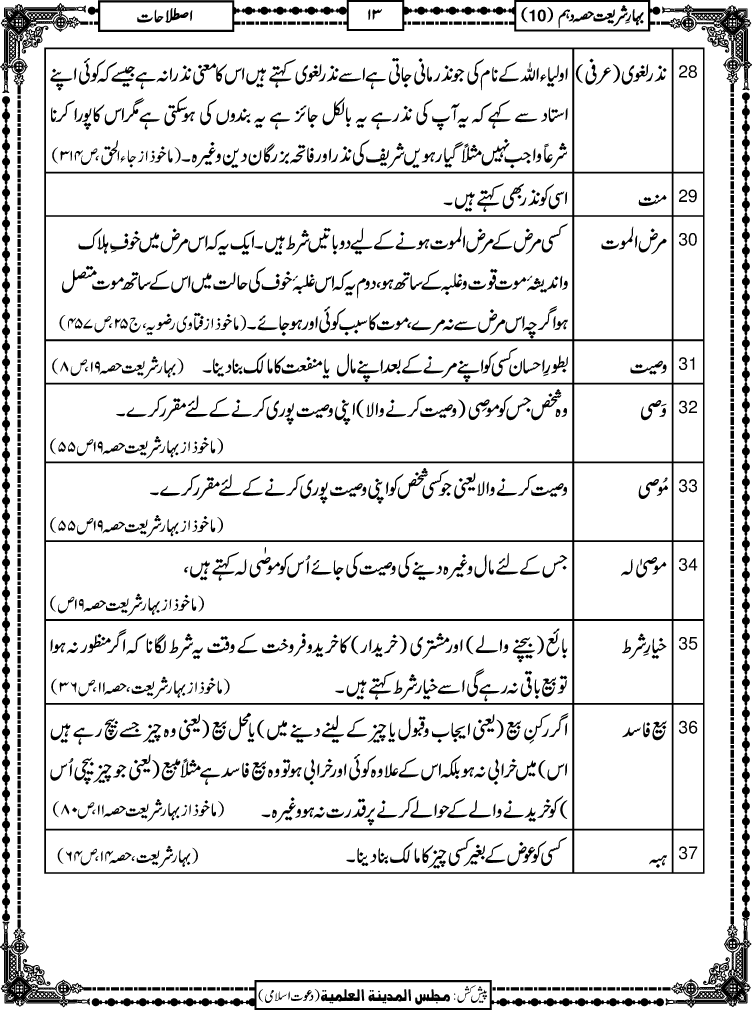 بہارِ شریعت حصہ دہم (10)
۱۳
اصطلاحات
28 نذرِ لغوی (عرفی) اولیاء اللہ کے نام کی جو نذر مانی جاتی ہے اسے نذر لغوی کہتے ہیں اس کا معنی نذرانہ ہے جیسے کہ کوئی اپنے
استاد سے کہے کہ یہ آپ کی نذر ہے یہ بالکل جائز ہے یہ بندوں کی ہوسکتی ہے مگر اس کا پورا کرنا
شرعاً واجب نہیں مثلاً گیارہویں شریف کی نذر اور فاتحہ بزرگان دین وغیرہ۔ (ماخوذ از جاء الحق، ص۳۱۴)
29 منت اسی کو نذر بھی کہتے ہیں۔
30 مرض الموت کسی مرض کے مرض الموت ہونے کے لیے دو باتیں شرط ہیں۔ ایک یہ کہ اس مرض میں خوفِ ہلاک
واندیشۂ موت قوت وغلبہ کے ساتھ ہو، دوم یہ کہ اس غلبۂ خوف کی حالت میں اس کے ساتھ موت متصل
ہو اگرچہ اس مرض سے نہ مرے، موت کا سبب کوئی اور ہوجائے۔ (ماخوذ از فتاوی رضویہ، ج۲۵، ص۴۵۷)
31 وصیت بطورِ احسان کسی کو اپنے مرنے کے بعد اپنے مال یا منفعت کا مالک بنا دینا۔ (بہارشریعت حصہ۱۹، ص۸)
32 وَصی وہ شخص جس کو موصی (وصیت کرنے والا) اپنی وصیت پوری کرنے کے لئے مقرر کرے۔
(ماخوذ از بہارشریعت حصہ۱۹ص۵۵)
33 مُوصی وصیت کرنے والا یعنی جو کسی شخص کو اپنی وصیت پوری کرنے کے لئے مقرر کرے۔
(ماخوذ از بہارشریعت حصہ۱۹ص۵۵)
34 موصیٰ لہ جس کے لئے مال وغیرہ دینے کی وصیت کی جائے اُس کو موصٰی لہ کہتے ہیں،
(ماخوذ از بہارشریعت حصہ۱۹ص)
35 خیارِ شرط بائع (بیچنے والے) اور مشتری (خریدار) کا خرید و فروخت کے وقت یہ شرط لگانا کہ اگر منظور نہ ہوا
تو بیع باقی نہ رہے گی اسے خیار شرط کہتے ہیں۔ (ماخوذ از بہارشریعت، حصہ۱۱، ص۳۶)
36 بیع فاسد اگر رکنِ بیع (یعنی ایجاب وقبول یا چیز کے لینے دینے میں) یا محل بیع (یعنی وہ چیز جسے بیچ رہے ہیں
اس) میں خرابی نہ ہو بلکہ اس کے علاوہ کوئی اور خرابی ہو تو وہ بیع فاسد ہے مثلاً مبیع (یعنی جو چیز بیچی اُس
) کو خریدنے والے کے حوالے کرنے پر قدرت نہ ہو وغیرہ۔ (ماخوذ از بہارشریعت حصہ۱۱، ص۸۰)
37 ہبہ کسی کو عوض کے بغیر کسی چیز کا مالک بنا دینا۔ (بہارشریعت، حصہ۱۴، ص۶۴)
پیش کش: مجلس المدینۃ العلمیۃ (دعوت اسلامی)